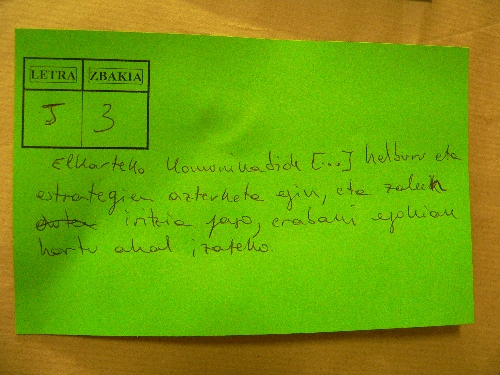 LETRA ZBAKIA
J 3
Elkarteko komunikatiok [...] helburu eta
estrategien azterketa egin, eta zalek
iritzia jaso, erabaki egokiak
hartu ahal izateko.